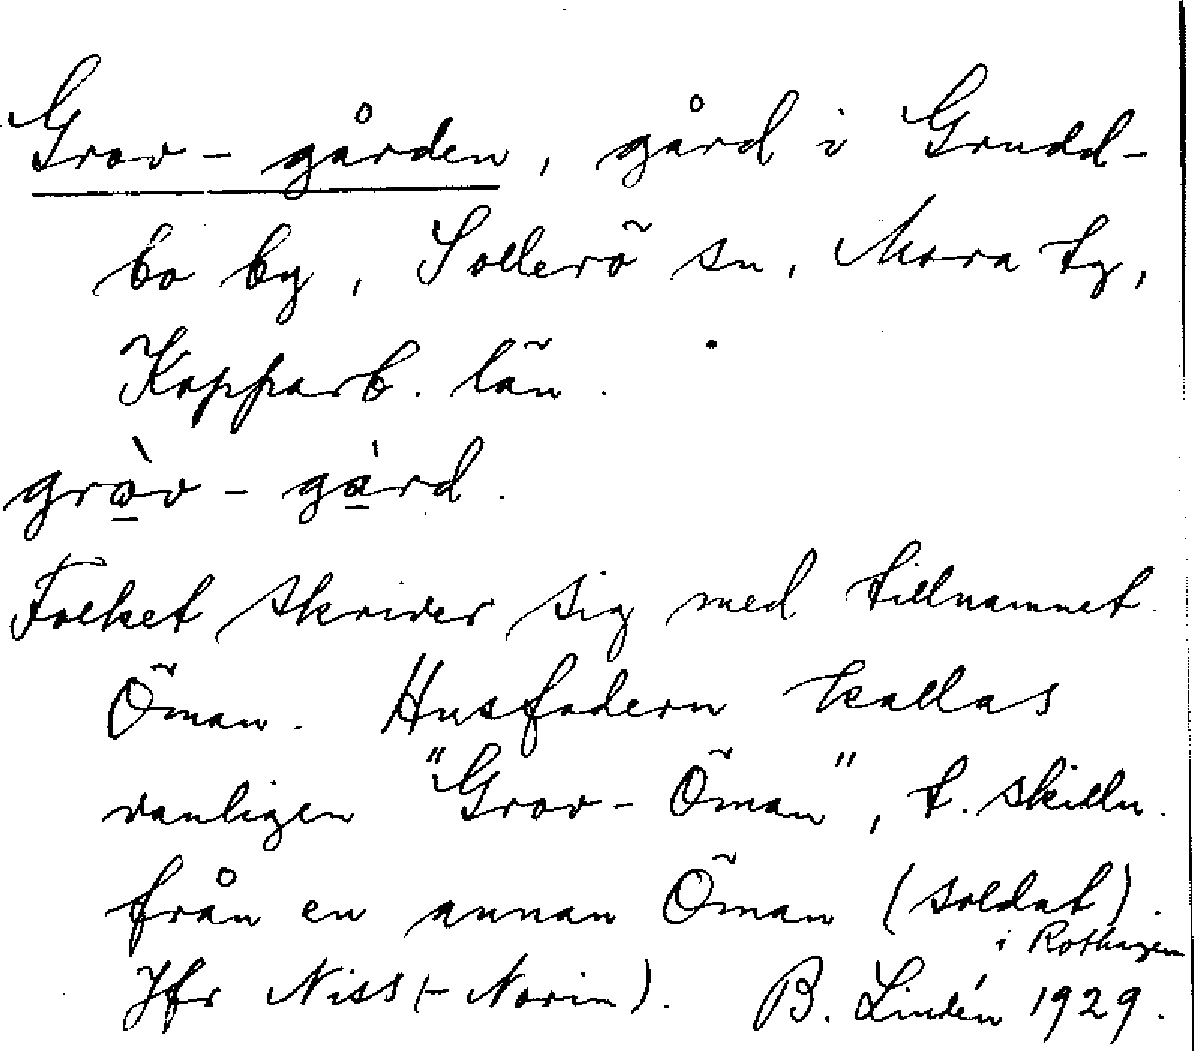 Grov-gården, gård i Grudd-
bo by, Sollerö sn, Mora tg,
Kopparb. län.
gròv-gà̠rd.
Folket skriver sig med tillnamnet
Öman. Husfadern kallas
vanligen "Grov-Öman", t. skilln.
från en annan Öman (soldat).
i Rothagen
Jfr Niss(-Norin). B. Lindén 1929.